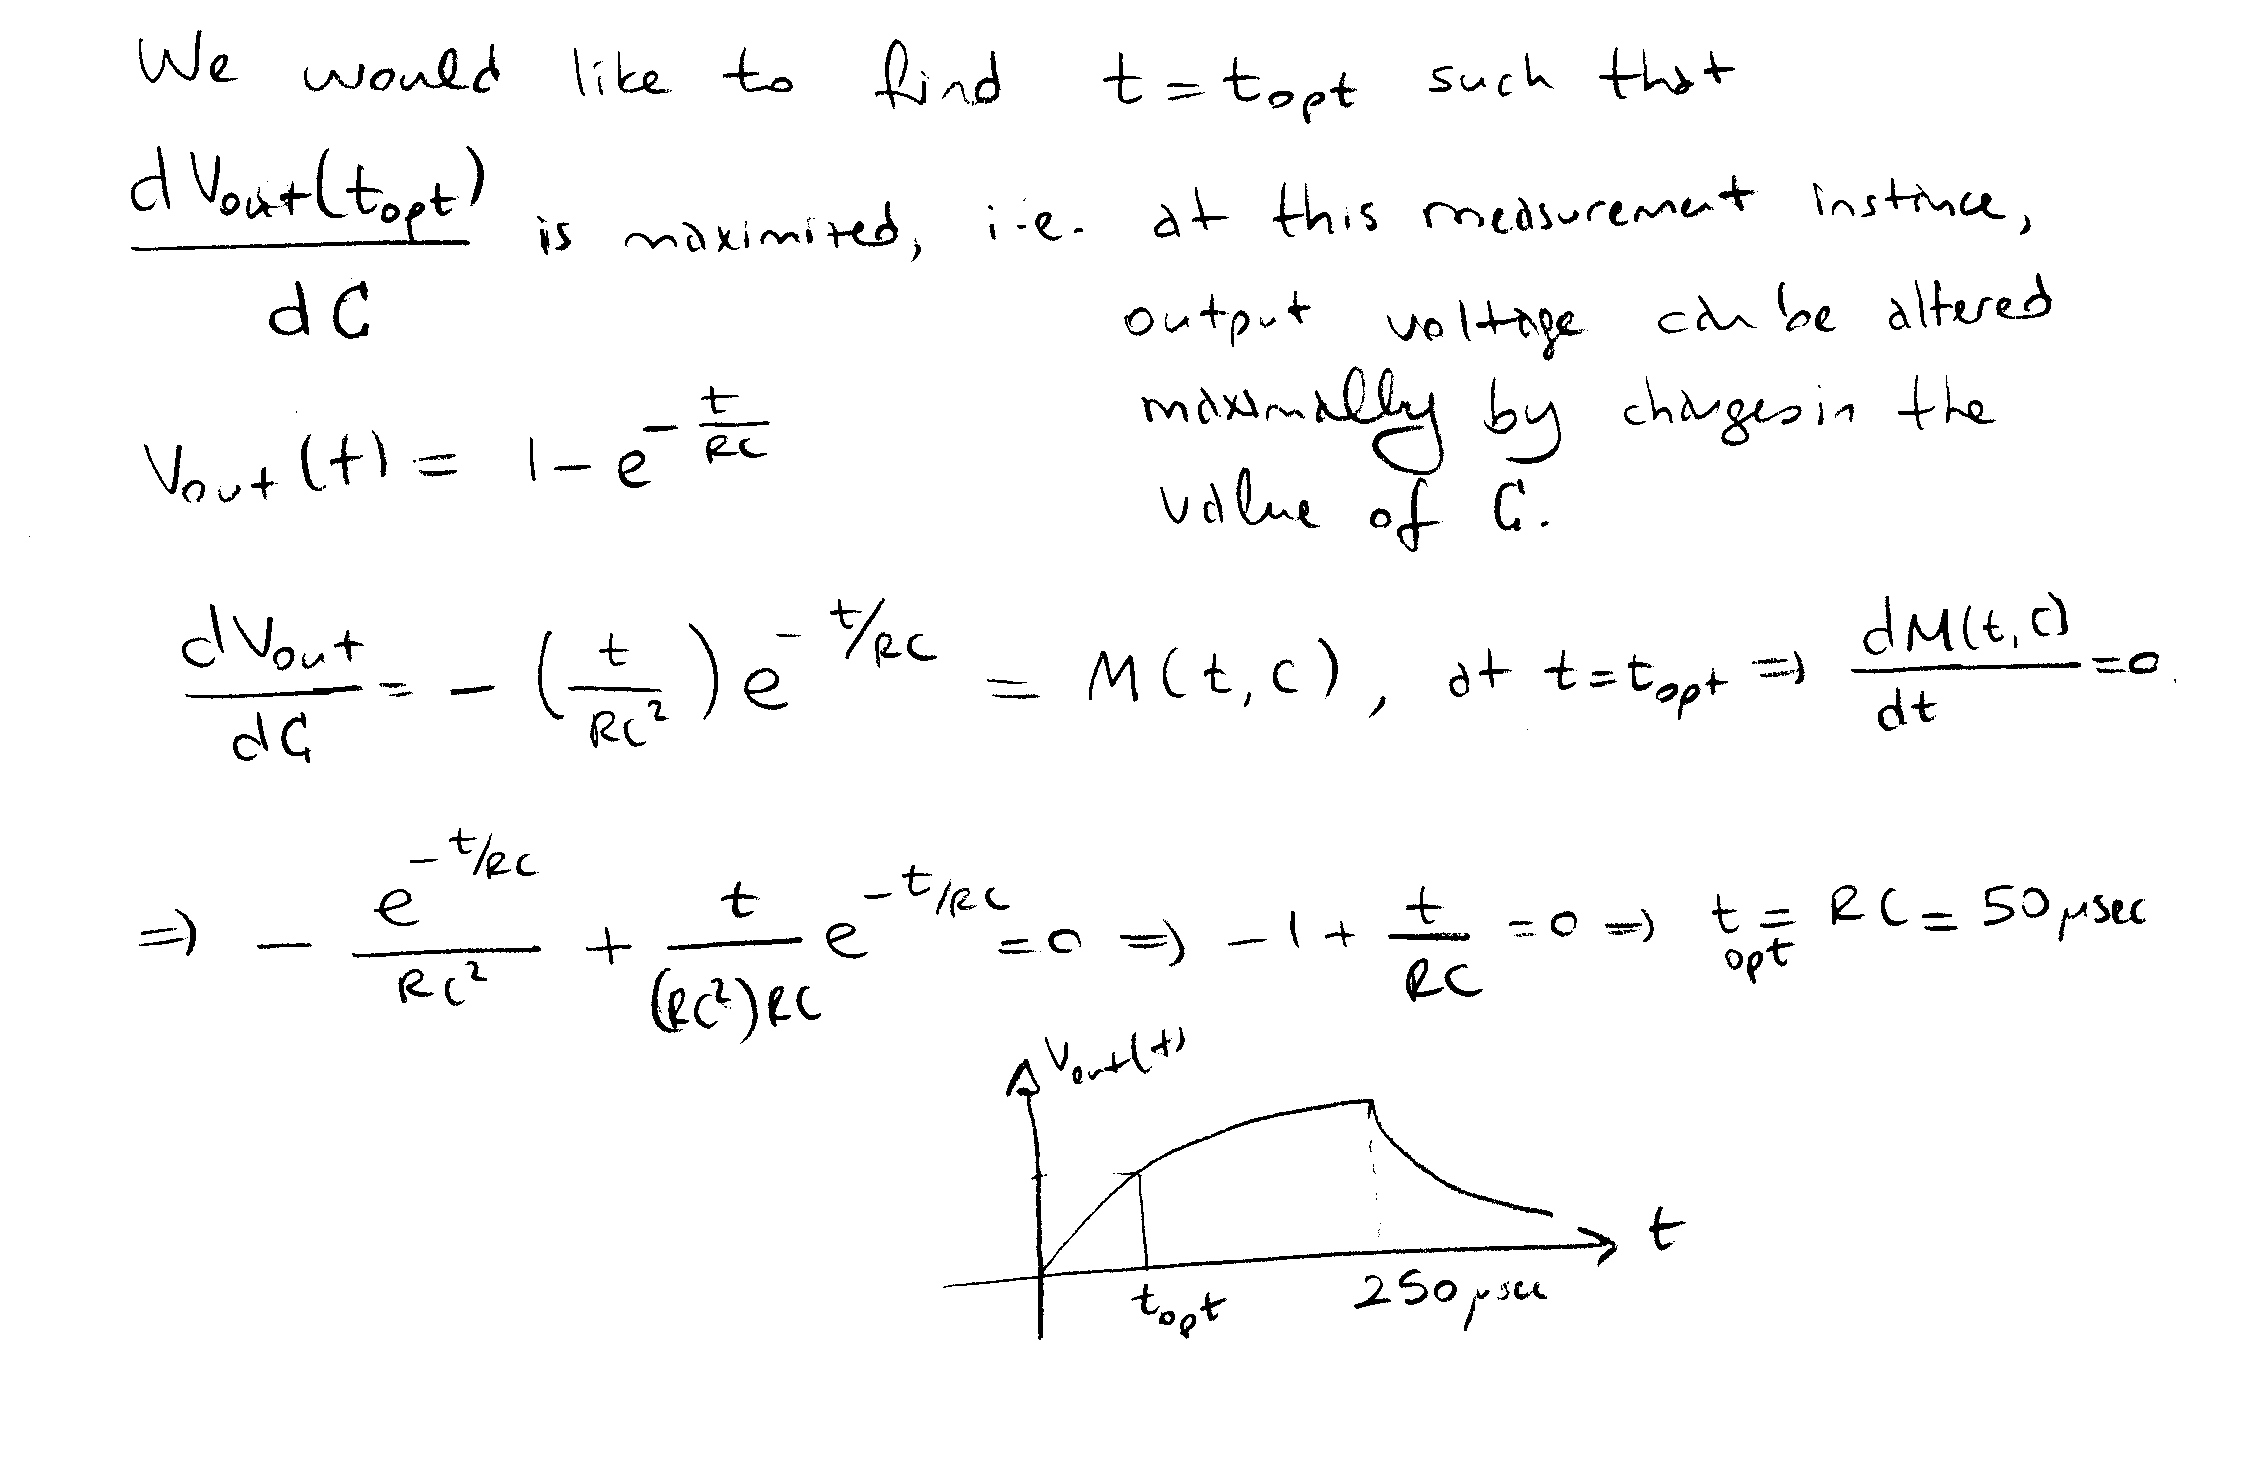 We would like to find t = t_opt such that
dVout(t_opt)/dC is maximized, i.e. at this measurement instance,
output voltage can be altered
maximally by changes in the
value of C.
Vout(t) = 1 - e^(-t/RC)
dVout/dC = -(t/RC²)e^(-t/RC) = M(t,C), at t = t_opt ⇒ dM(t,C)/dt = 0
⇒ - e^(-t/RC)/RC² + t/((RC²)RC) e^(-t/RC) = 0 ⇒ -1 + t/RC = 0 ⇒ t_opt = RC = 50 μsec
Vout(t)
t
t_opt
250 μsec